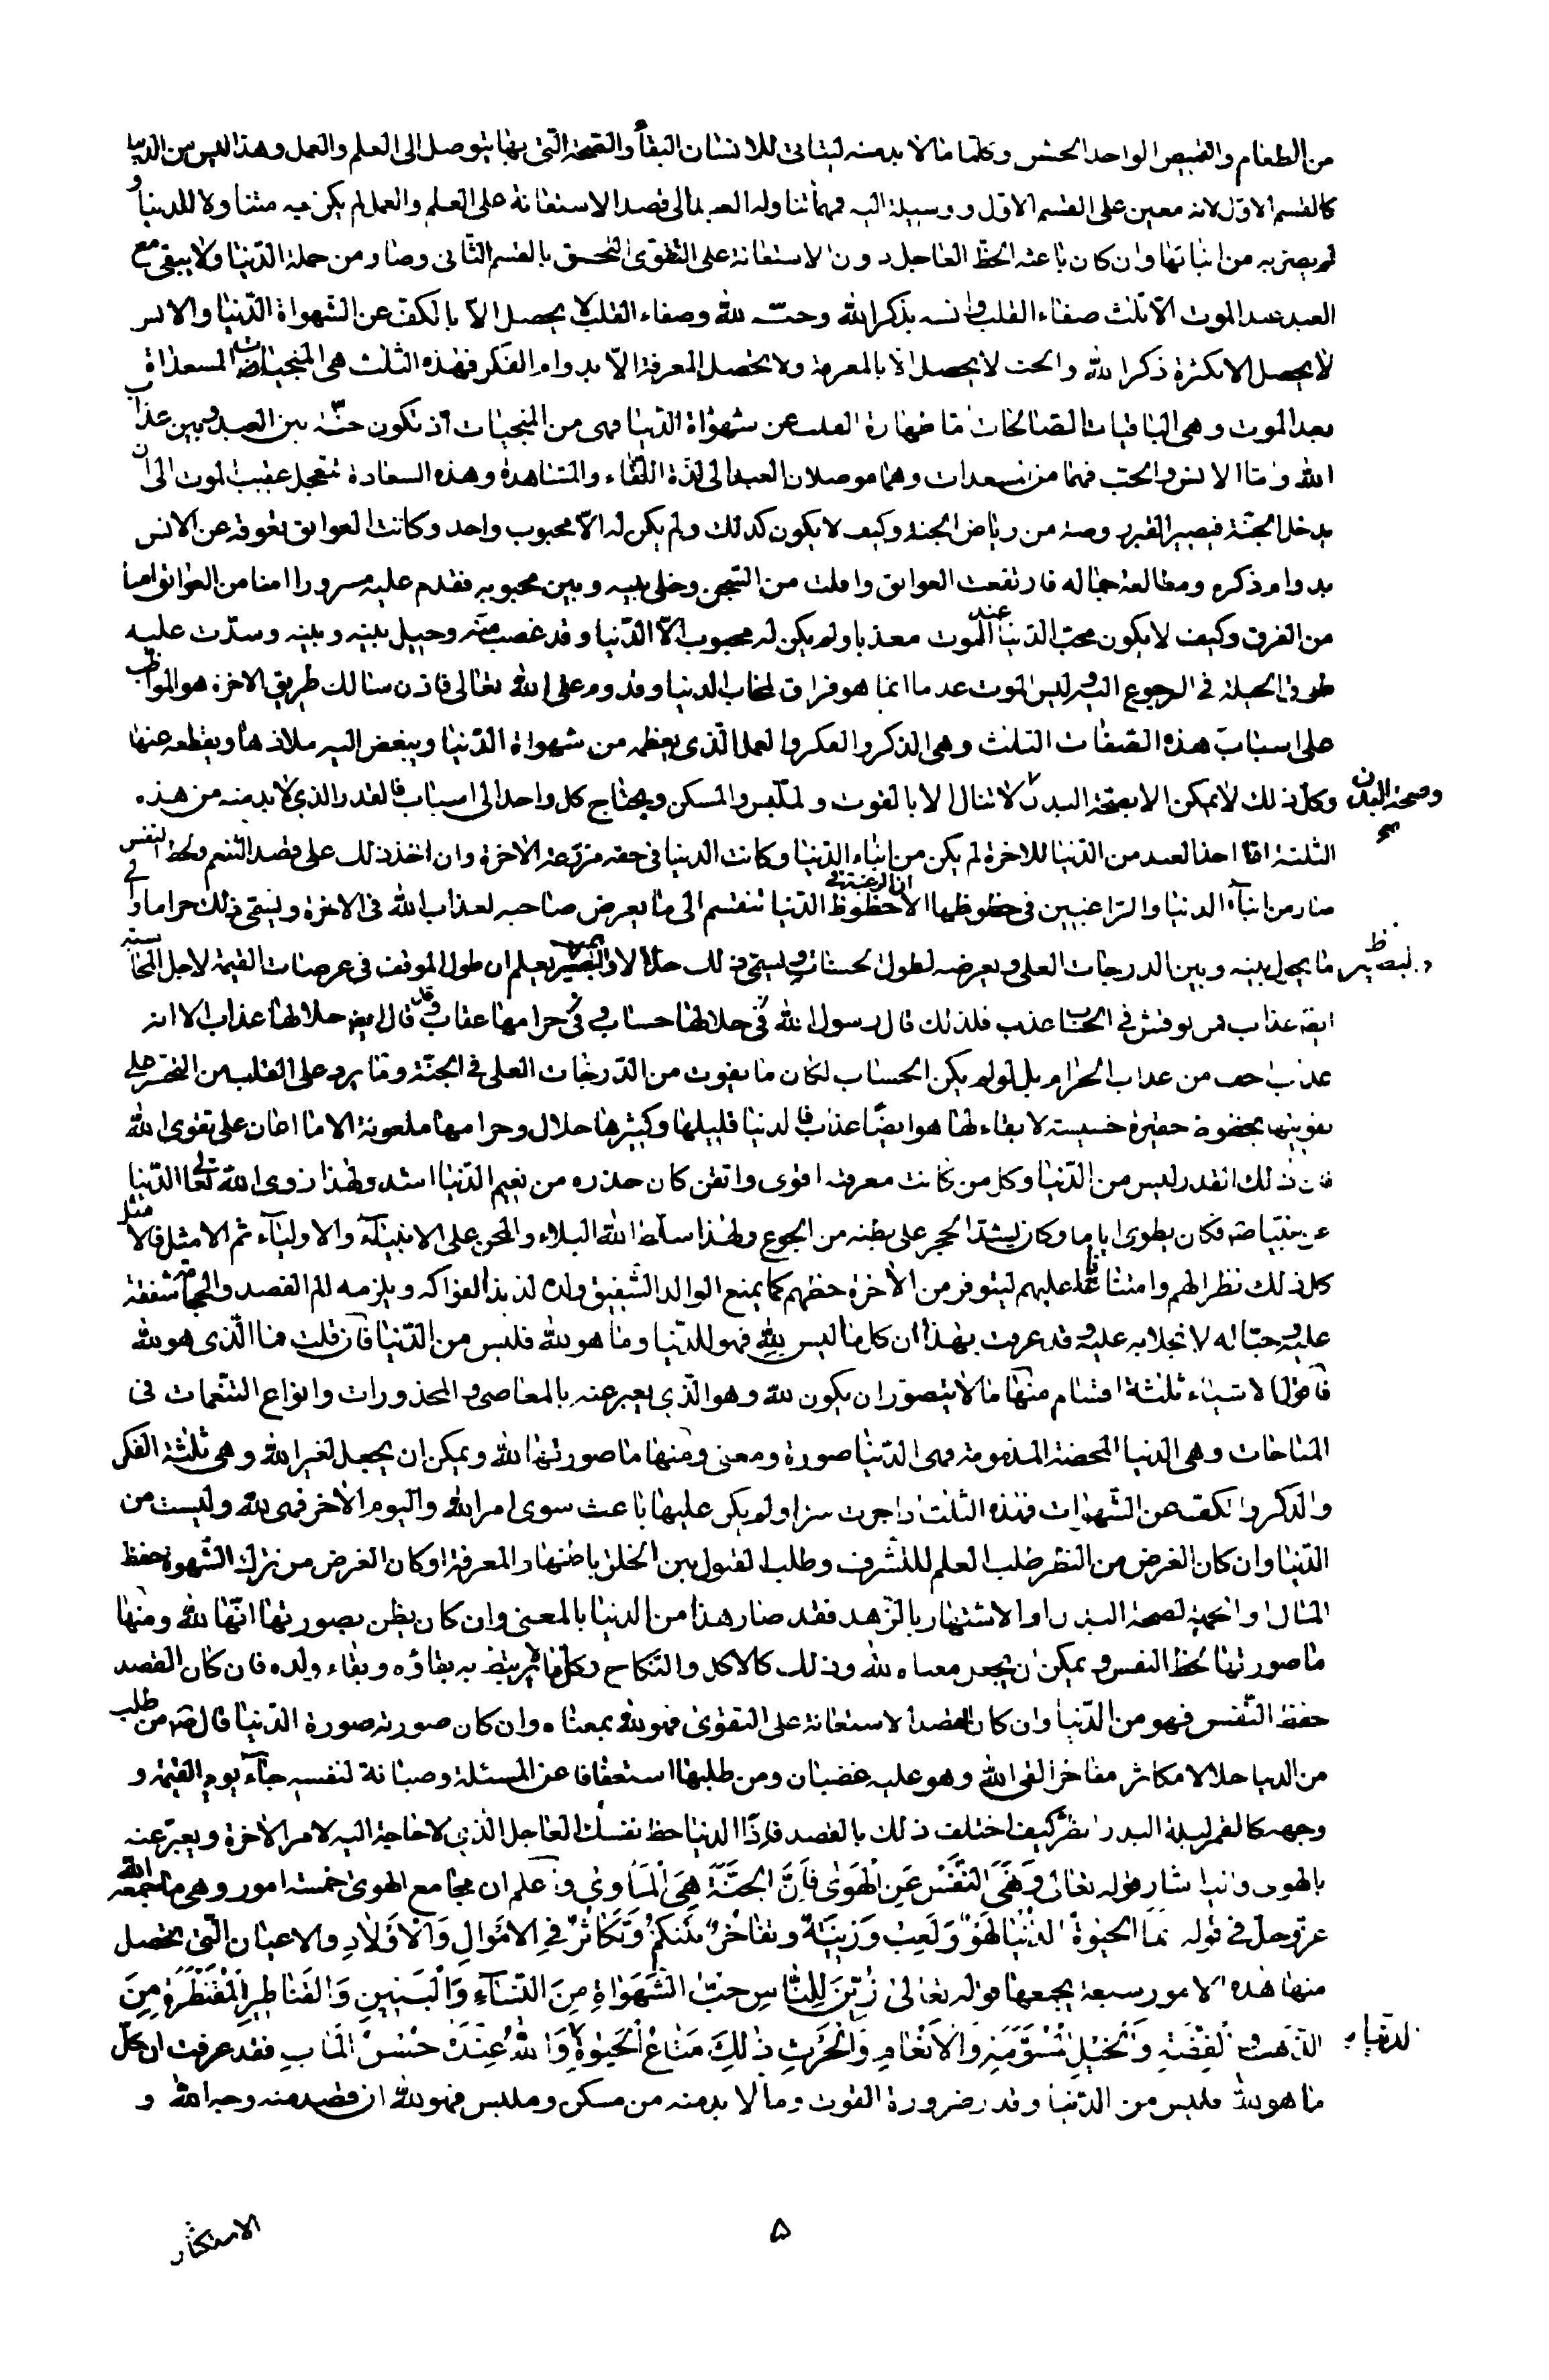 من الطعام والقميص الواحد الخشن وكلما لا بد منه ليتاتى للانسان البقاء والصحة التى بها يتوصل الى العلم والعمل وهذا ليس من الدنيا
كالقسم الاول لانه معين على القسم الاول ووسيلة اليه فمهما تناوله العبد على قصد الاستعانة على العلم والعمل لم يكن به متناولا للدنيا و
لم يصر به من ابنائها وان كان باعثه الحظ العاجل دون الاستعانة على التقوى التحق بالقسم الثانى وصار من جملة الدنيا ولا يبقى مع
العبد عند الموت الا ثلث صفاء القلب وانسه بذكر الله وحبه لله وصفاء القلب لا يحصل الا بالكف عن الشهواة الدنيا والانس
لا يحصل الا بكثرة ذكر الله والحب لا يحصل الا بالمعرفة ولا تحصل المعرفة الا بدوام الفكر فهذه الثلث هى المنجيات المسعداة
بعد الموت وهى الباقيات الصالحات اما طهارة القلب عن شهواة الدنيا فهى من المنجيات اذ تكون جنة بين العبد وبين عذاب
الله واما الانس والحب فهما من المسعدات وهما موصلان العبد الى لذة اللقاء والمشاهدة وهذه السعادة تتعجل عقيب الموت الى ان
يدخل الجنة فيصير القبر روضة من رياض الجنة وكيف لا يكون كذلك ولم يكن له الا محبوب واحد وكانت العوايق تعوقه عن الانس
بدوام ذكره ومطالعة جماله فارتفعت العوايق وافلت من السجن وخلى بينه وبين محبوبه فقدم عليه مسرورا امنا من العوايق امنا
من الفرق وكيف لا يكون محب الدنيا عند الموت معذبا ولم يكن له محبوب الا الدنيا وقد غصب منه وحيل بينه وبينه وسدت عليه
طرق الحيلة فى الرجوع اليه وليس الموت عدما انما هو فراق لمحاب الدنيا وقدوم على الله تعالى فاذن سالك طريق الاخرة هو المواظب
على اسباب هذه الصفات الثلث وهى الذكر والفكر والعمل الذى يفطمه من شهواة الدنيا ويبغض اليه ملاذها ويقطعه عنها
وكل ذلك لا يمكن الا بصحة البدن لا تنال الا بالقوت والملبس والمسكن ويحتاج كل واحد الى اسباب فالقدر الذى لا بد منه من هذه
وصحة البدن صح
الثلثة اذا اخذ العبد من الدنيا للاخرة لم يكن من ابناء الدنيا وكانت الدنيا فى حقه مزرعة الاخرة وان اخذ ذلك على قصد التنعم وحظ النفس
صار من ابناء الدنيا والراغبين فى حظوظها الا ان الرغبة فى حظوظ الدنيا تنقسم الى ما يعرض صاحبه لعذاب الله فى الاخرة ويسمى ذلك حراما و
ما يحول بينه وبين الدرجات العلى ويعرضه لطول الحساب ويسمى ذلك حلالا والبصير يعلم ان طول الموقف فى عرصات القيمة لاجل المحاسبة
ايضا عذاب فمن نوقش فى الحساب عذب فلذلك قال رسول الله فى حلالها حساب وفى حرامها عقاب وقد قال ايضا حلالها عذاب الا انه
عذاب اخف من عذاب الحرام بل لو لم يكن الحساب لكان ما يفوت من الدرجات العلى فى الجنة وما يرد على القلب من التحسر على
تفويتها بحظوظ حقيرة خسيسة لا بقاء لها هو ايضا عذاب فالدنيا قليلها وكثيرها حلال وحرامها ملعونة الا ما اعان على تقوى الله
فان ذلك القدر ليس من الدنيا وكل من كانت معرفته اقوى واتقن كان حذره من نعيم الدنيا اشد ولهذا زوى الله تعالى الدنيا
عن نبينا ص فكان يطوى اياما وكان يشد الحجر على بطنه من الجوع ولهذا سلط الله البلاء والمحن على الانبياء والاولياء ثم الامثل فالامثل
كل ذلك نظرا لهم وامتنانا عليهم ليتوفر من الاخرة حظهم كما يمنع الوالد الشفيق ولده لذيذ الفواكه ويلزمه الم الفصد والحجامة شفقة
عليه وحبا له لا بخلا به عليه وقد عرفت بهذا ان كل ما ليس لله فهو للدنيا وما هو لله فليس من الدنيا فان قلت فما الذى هو لله
فاقول الاشياء ثلثة اقسام منها ما لا يتصور ان يكون لله وهو الذى يعبر عنه بالمعاصى والمحذورات وانواع التنعمات فى
المباحات وهى الدنيا المحضة المذمومة فهى الدنيا صورة ومعنى ومنها ما صورتها لله ويمكن ان يجعل لغير الله وهى ثلثة الفكر
والذكر والكف عن الشهوات فهذه الثلث اذا جرت سرا ولم يكن عليها باعث سوى امر الله واليوم الاخر فهى لله وليست من
الدنيا وان كان الغرض من النظر طلب العلم للتشرف وطلب القبول بين الخلق باظهار المعرفة او كان الغرض من ترك الشهوة حفظ
المال او الحمية لصحة البدن او الاشتهار بالزهد فقد صار هذا من الدنيا بالمعنى وان كان يظن بصورتها انها لله ومنها
ما صورتها لحظ النفس ويمكن ان يجعل معناه لله وذلك كالاكل والنكاح وكل ما يرتبط به بقاؤه وبقاء ولده فان كان القصد
حفظ النفس فهو من الدنيا وان كان القصد الاستعانة على التقوى فهو لله بمعناه وان كان صورته صورة الدنيا قال ص من طلب
من الدنيا حلالا مكاثر مفاخرا لقى الله وهو عليه غضبان ومن طلبها استعفافا عن المسئلة وصيانة لنفسه جاء يوم القيمة و
وجهه كالقمر ليلة البدر انظر كيف اختلف ذلك بالقصد فاذا الدنيا حظ نفسك العاجل الذى لا حاجة اليه لامر الاخرة ويعبر عنه
بالهوى واليه اشار قوله تعالى وَنَهَى النَّفْسَ عَنِ الْهَوَى فَاِنَّ الْجَنَّةَ هِيَ الْمَأْوَى واعلم ان مجامع الهوى خمسة امور وهى ما جمعه الله
عز وجل فى قوله انما الحيوة الدُّنْيَا لَهْوٌ وَلَعِبٌ وَزِينَةٌ وتفاخرٌ بَيْنَكُمْ وَتَكَاثُرٌ فِى الامْوَالِ وَالْاَوْلَادِ والاعيان التى تحصل
منها هذه الامور سبعة يجمعها قوله تعالى زُيِّنَ لِلنَّاسِ حُبُّ الشَّهَوَاةِ مِنَ النِّسَاءِ وَالْبَنِينِ وَالقَنَاطِيرِ الْمُقَنْطَرَةِ مِنَ
الذَّهَبِ وَالْفِضَّةِ وَالْخَيْلِ الْمُسَوَّمَةِ وَالْاَنْعَامِ وَالْحَرْثِ ذَلِكَ مَتَاعُ الْحَيوةِ وَاللهُ عِنْدَهُ حُسْنُ الْمَابِ فقد عرفت ان كل
الدنيا
ما هو لله فليس من الدنيا وقدر ضرورة القوت وما لا بد منه من مسكن وملبس فهو لله ان قصد منه وجه الله و
۵
الاستكثار